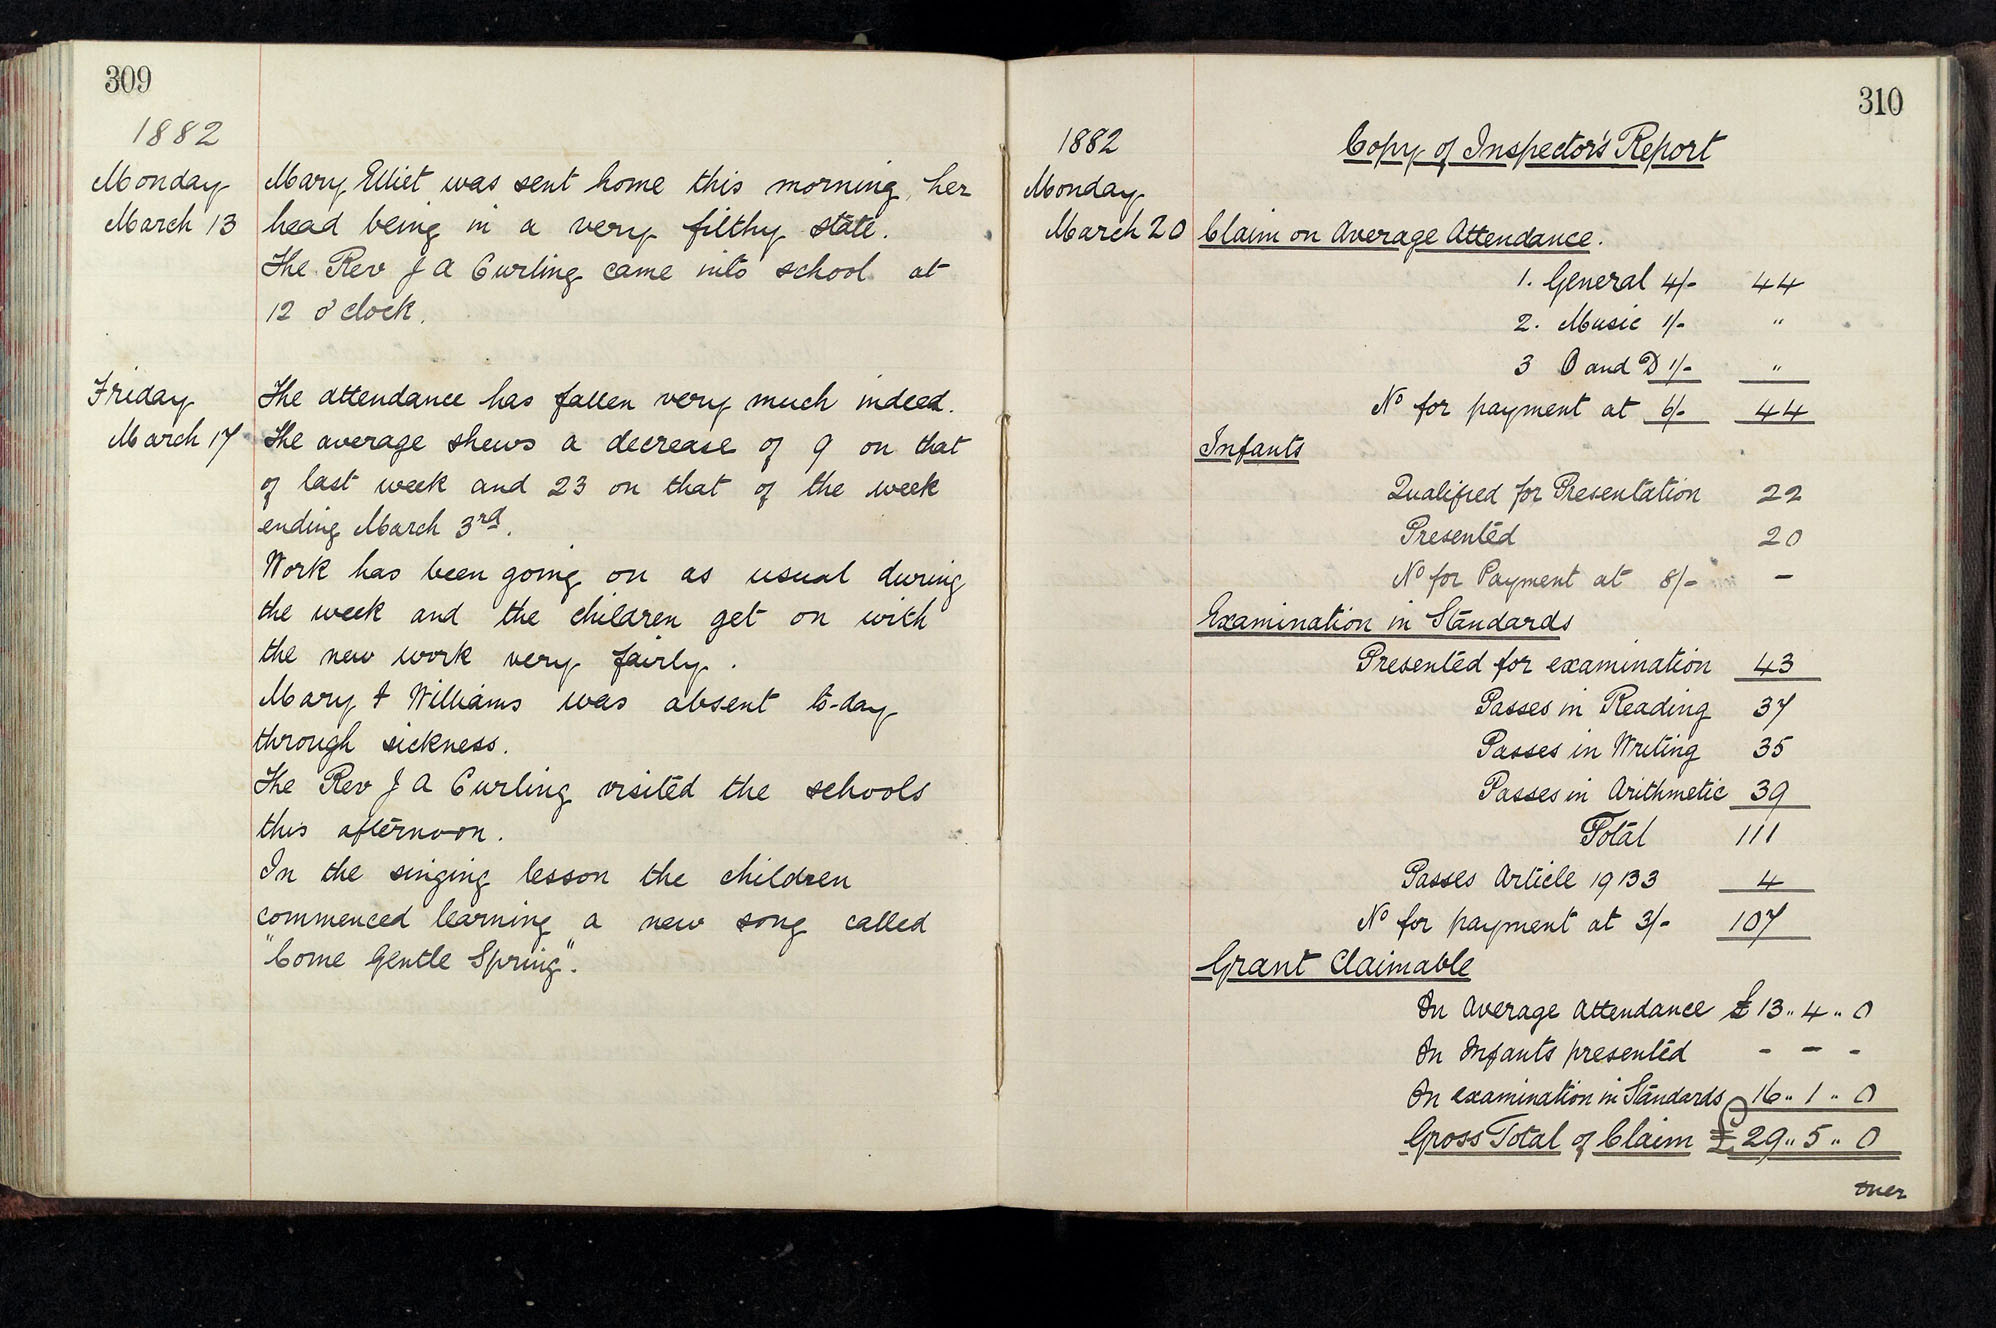 309
1882
Monday
March 13
Mary Elliet was sent home this morning, her
head being in a very filthy state.
The Rev J A Curling came into school at
12 o'clock.
Friday
March 17
The attendance has fallen very much indeed.
The average shews a decrease of 9 on that
of last week and 23 on that of the week
ending March 3rd.
Work has been going on as usual during
the week and the children get on with
the new work very fairly.
Mary Williams was absent to-day
through sickness.
The Rev J A Curling visited the schools
this afternoon.
In the singing lesson the children
commenced learning a new song called
"Come Gentle Spring".
310
1882
Copy of Inspector's Report
Monday
March 20
Claim on Average Attendance.
1. General 4/- 44
2. Music 1/- "
3 O and D 1/- "
No for payment at 6/- 44
Infants
Qualified for Presentation 22
Presented 20
No for Payment at 8/- -
Examination in Standards
Presented for examination 43
Passes in Reading 37
Passes in Writing 35
Passes in Arithmetic 39
Total 111
Passes Article 19 B3 4
No for payment at 3/- 107
Grant Claimable
On Average Attendance £13 " 4 " 0
On Infants presented - - -
On examination in Standards 16 " 1 " 0
Gross Total of Claim £29 " 5 " 0
over